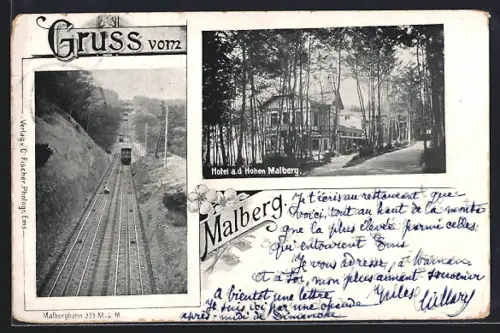 Gruss vom
Malberg.
Hotel a.d. Hohen Malberg.
Verlag v. C. Fischer, Photogr. Ems.
Malbergbahn 335 M. ü. M.
Je t'écris au restaurant que
voici, tout au haut de la montagne
que la plus élevée parmi celles
qui entourent Ems
Je vous adresse, à Maman
et à toi, mon plus aimant souvenir
A bientôt une lettre. Jules
Je suis ici par une chaude
après-midi de Dimanche